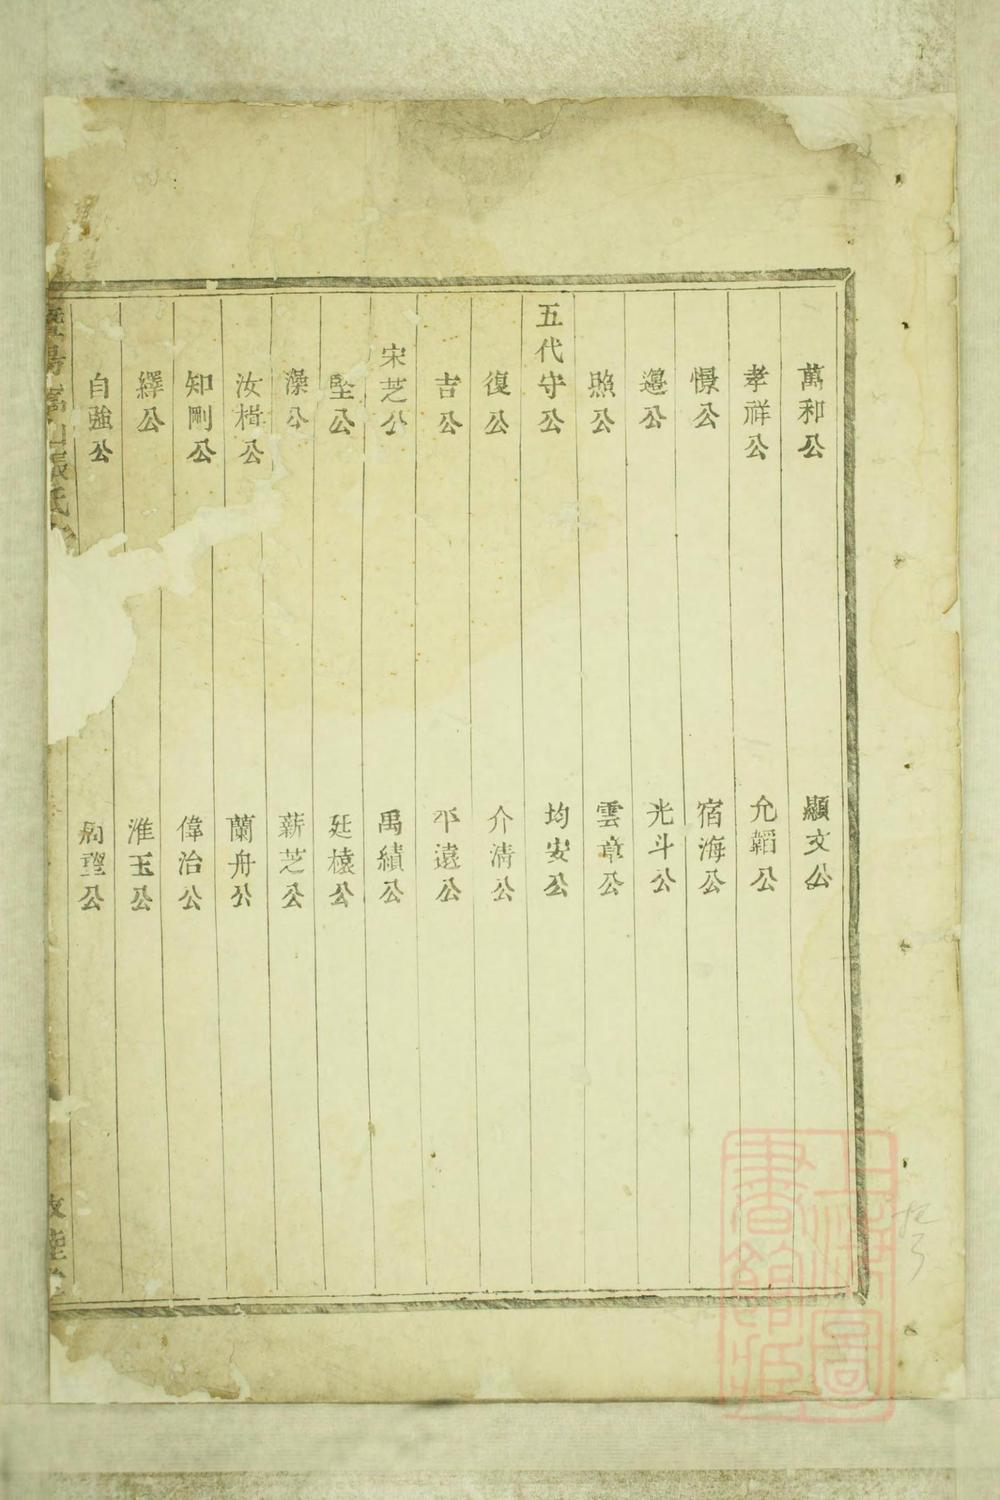 萬和公
孝祥公
憬公
邊公
照公
五代守公
復公
吉公
宋芝公
堅公
藻公
汝楫公
知剛公
繹公
自強公
顯文公
允韜公
宿海公
光斗公
雲章公
均安公
介清公
平遠公
禹績公
廷樑公
薪芝公
蘭舟公
偉治公
淮玉公
公
張氏
上海圖書館藏